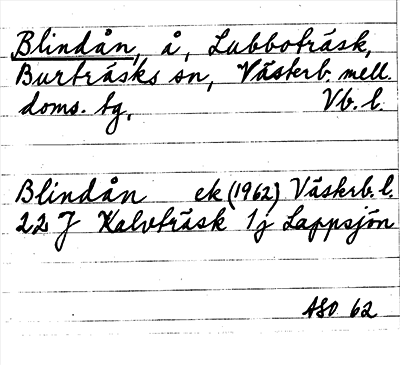 Blindån, å, Lubboträsk,
Burträsks sn, Västerb. mell.
doms. tg, Vb. l.
Blindån ek (1962) Västerb. l.
22 J Kalvträsk 1j Lappsjön
ASO 62